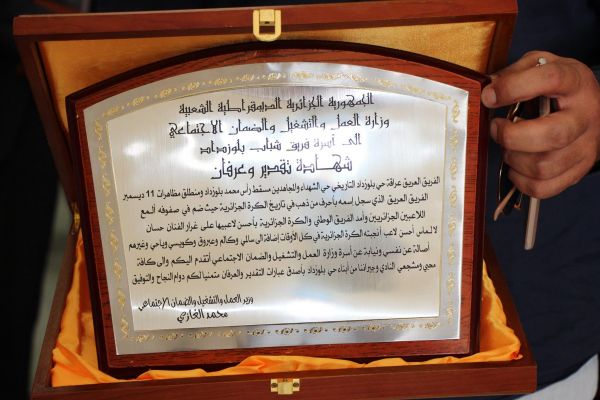 الجمهورية الجزائرية الديموقراطية الشعبية
وزارة العمل والتشغيل والضمان الاجتماعي
الى أسرة فريق شباب بلوزداد
شهادة تقدير وعرفان
الفريق العريق عراقة حي بلوزداد التاريخي حي الشهداء والمجاهدين مسقط رأس محمد بلوزداد ومنطلق مظاهرات 11 ديسمبر
الفريق العريق الذي سجل إسمه بأحرف من ذهب في تاريخ الكرة الجزائرية حيث ضم في صفوفه ألمع
اللاعبين الجزائريين وأمد الفريق الوطني والكرة الجزائرية بأحسن لاعبيها على غرار الفنان حسان
لالماس أحسن لاعب أنجبته الكرة الجزائرية في كل الأوقات إضافة الى سالمي وكالم وعبروق وكويسي وياحي وغيرهم
أصالة عن نفسي ونيابة عن أسرة وزارة العمل والتشغيل والضمان الاجتماعي أتقدم اليكم والى كافة
محبي ومشجعي النادي وجيراننا من أبناء حي بلوزداد بأصدق عبارات التقدير والعرفان متمنيا لكم دوام النجاح والتوفيق
وزير العمل والتشغيل والضمان الإجتماعي
محمد الغازي